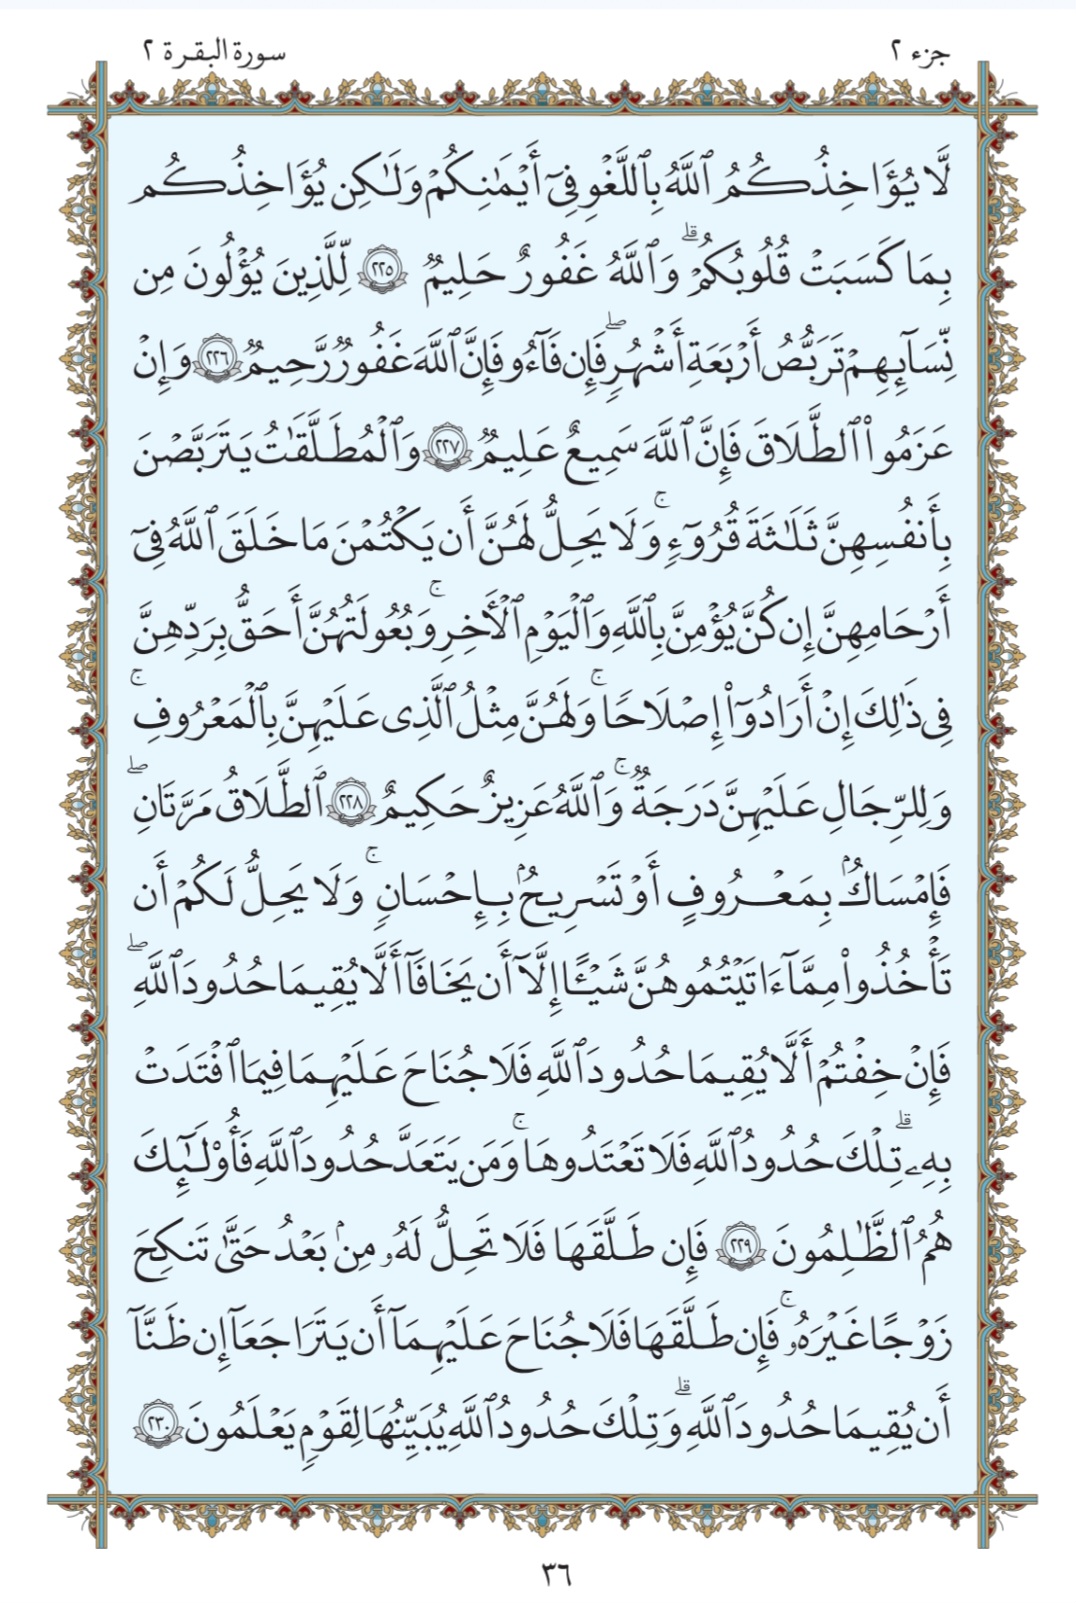 جزء ٢
سورة البقرة ٢
لَّا يُؤَاخِذُكُمُ ٱللَّهُ بِٱللَّغْوِ فِىٓ أَيْمَـٰنِكُمْ وَلَـٰكِن يُؤَاخِذُكُم
بِمَا كَسَبَتْ قُلُوبُكُمْ ۗ وَٱللَّهُ غَفُورٌ حَلِيمٌ ٢٢٥ لِّلَّذِينَ يُؤْلُونَ مِن
نِّسَآئِهِمْ تَرَبُّصُ أَرْبَعَةِ أَشْهُرٍ ۖ فَإِن فَآءُو فَإِنَّ ٱللَّهَ غَفُورٌ رَّحِيمٌ ٢٢٦ وَإِنْ
عَزَمُوا۟ ٱلطَّلَاقَ فَإِنَّ ٱللَّهَ سَمِيعٌ عَلِيمٌ ٢٢٧ وَٱلْمُطَلَّقَـٰتُ يَتَرَبَّصْنَ
بِأَنفُسِهِنَّ ثَلَـٰثَةَ قُرُوٓءٍ ۚ وَلَا يَحِلُّ لَهُنَّ أَن يَكْتُمْنَ مَا خَلَقَ ٱللَّهُ فِىٓ
أَرْحَامِهِنَّ إِن كُنَّ يُؤْمِنَّ بِٱللَّهِ وَٱلْيَوْمِ ٱلْـَٔاخِرِ ۚ وَبُعُولَتُهُنَّ أَحَقُّ بِرَدِّهِنَّ
فِى ذَٰلِكَ إِنْ أَرَادُوٓا۟ إِصْلَـٰحًا ۚ وَلَهُنَّ مِثْلُ ٱلَّذِى عَلَيْهِنَّ بِٱلْمَعْرُوفِ ۚ
وَلِلرِّجَالِ عَلَيْهِنَّ دَرَجَةٌ ۗ وَٱللَّهُ عَزِيزٌ حَكِيمٌ ٢٢٨ ٱلطَّلَـٰقُ مَرَّتَانِ ۖ
فَإِمْسَاكٌۢ بِمَعْرُوفٍ أَوْ تَسْرِيحٌۢ بِإِحْسَـٰنٍ ۗ وَلَا يَحِلُّ لَكُمْ أَن
تَأْخُذُوا۟ مِمَّآ ءَاتَيْتُمُوهُنَّ شَيْـًٔا إِلَّآ أَن يَخَافَآ أَلَّا يُقِيمَا حُدُودَ ٱللَّهِ ۖ
فَإِنْ خِفْتُمْ أَلَّا يُقِيمَا حُدُودَ ٱللَّهِ فَلَا جُنَاحَ عَلَيْهِمَا فِيمَا ٱفْتَدَتْ
بِهِۦ ۗ تِلْكَ حُدُودُ ٱللَّهِ فَلَا تَعْتَدُوهَا ۚ وَمَن يَتَعَدَّ حُدُودَ ٱللَّهِ فَأُو۟لَـٰٓئِكَ
هُمُ ٱلظَّـٰلِمُونَ ٢٢٩ فَإِن طَلَّقَهَا فَلَا تَحِلُّ لَهُۥ مِنۢ بَعْدُ حَتَّىٰ تَنكِحَ
زَوْجًا غَيْرَهُۥ ۗ فَإِن طَلَّقَهَا فَلَا جُنَاحَ عَلَيْهِمَآ أَن يَتَرَاجَعَآ إِن ظَنَّآ
أَن يُقِيمَا حُدُودَ ٱللَّهِ ۗ وَتِلْكَ حُدُودُ ٱللَّهِ يُبَيِّنُهَا لِقَوْمٍ يَعْلَمُونَ ٢٣٠
٣٦